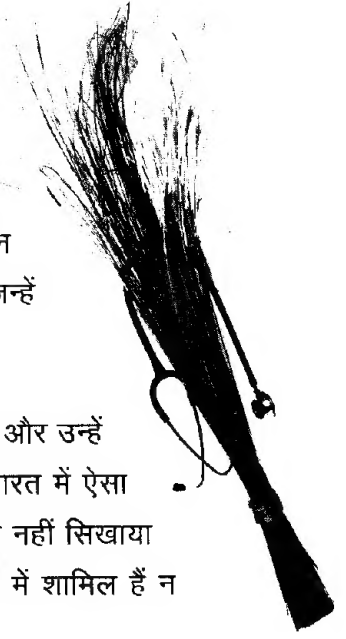 न
जन्हें
और उन्हें
ारत में ऐसा
नहीं सिखाया
में शामिल हैं न